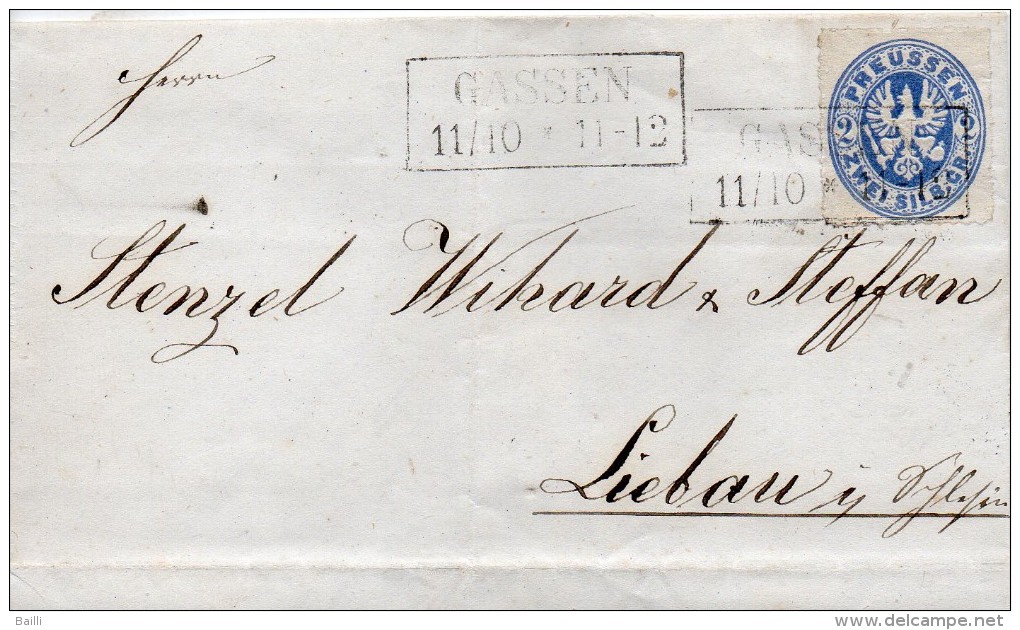 Herrn
GASSEN
11/10 * 11-12
GAS
11/10 *
PREUSSEN
2 2
ZWEI SILB.GR.
Stenzel Wihard & Steffan
Liebau i/ Schlesien
Bailli
www.delcampe.net